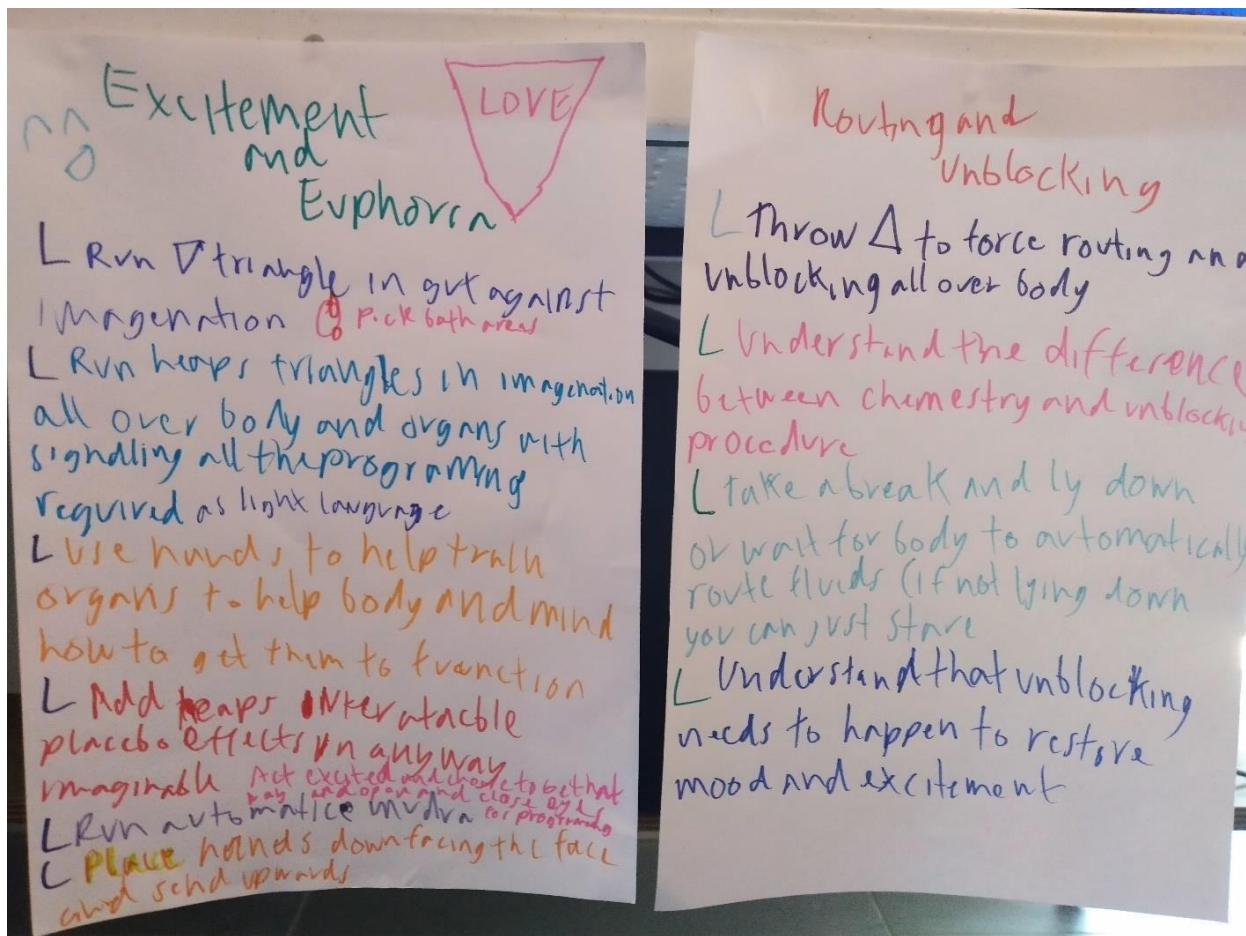 Excitement
and
Euphoria
LOVE
L Run ▽ triangle in gut against
imagenation
Pick both areas
L Run heaps triangles in imagenation
all over body and organs with
signalling all the programing
required as light language
L Use hands to help train
organs to help body and mind
how to get them to function
L Add heaps
placebo effects in anyway
imaginable
Act excited and chose to be that
way and open and close eyes
for programing
L Run automatice mudra
L Place hands down facing the face
and send upwards
Routing and
unblocking
L Throw △ to force routing and
unblocking all over body
L Understand the difference
between chemestry and unblocking
procedure
L take a break and ly down
or wait for body to automatically
route fluids (if not lying down
you can just stare
L Understand that unblocking
needs to happen to restore
mood and excitement